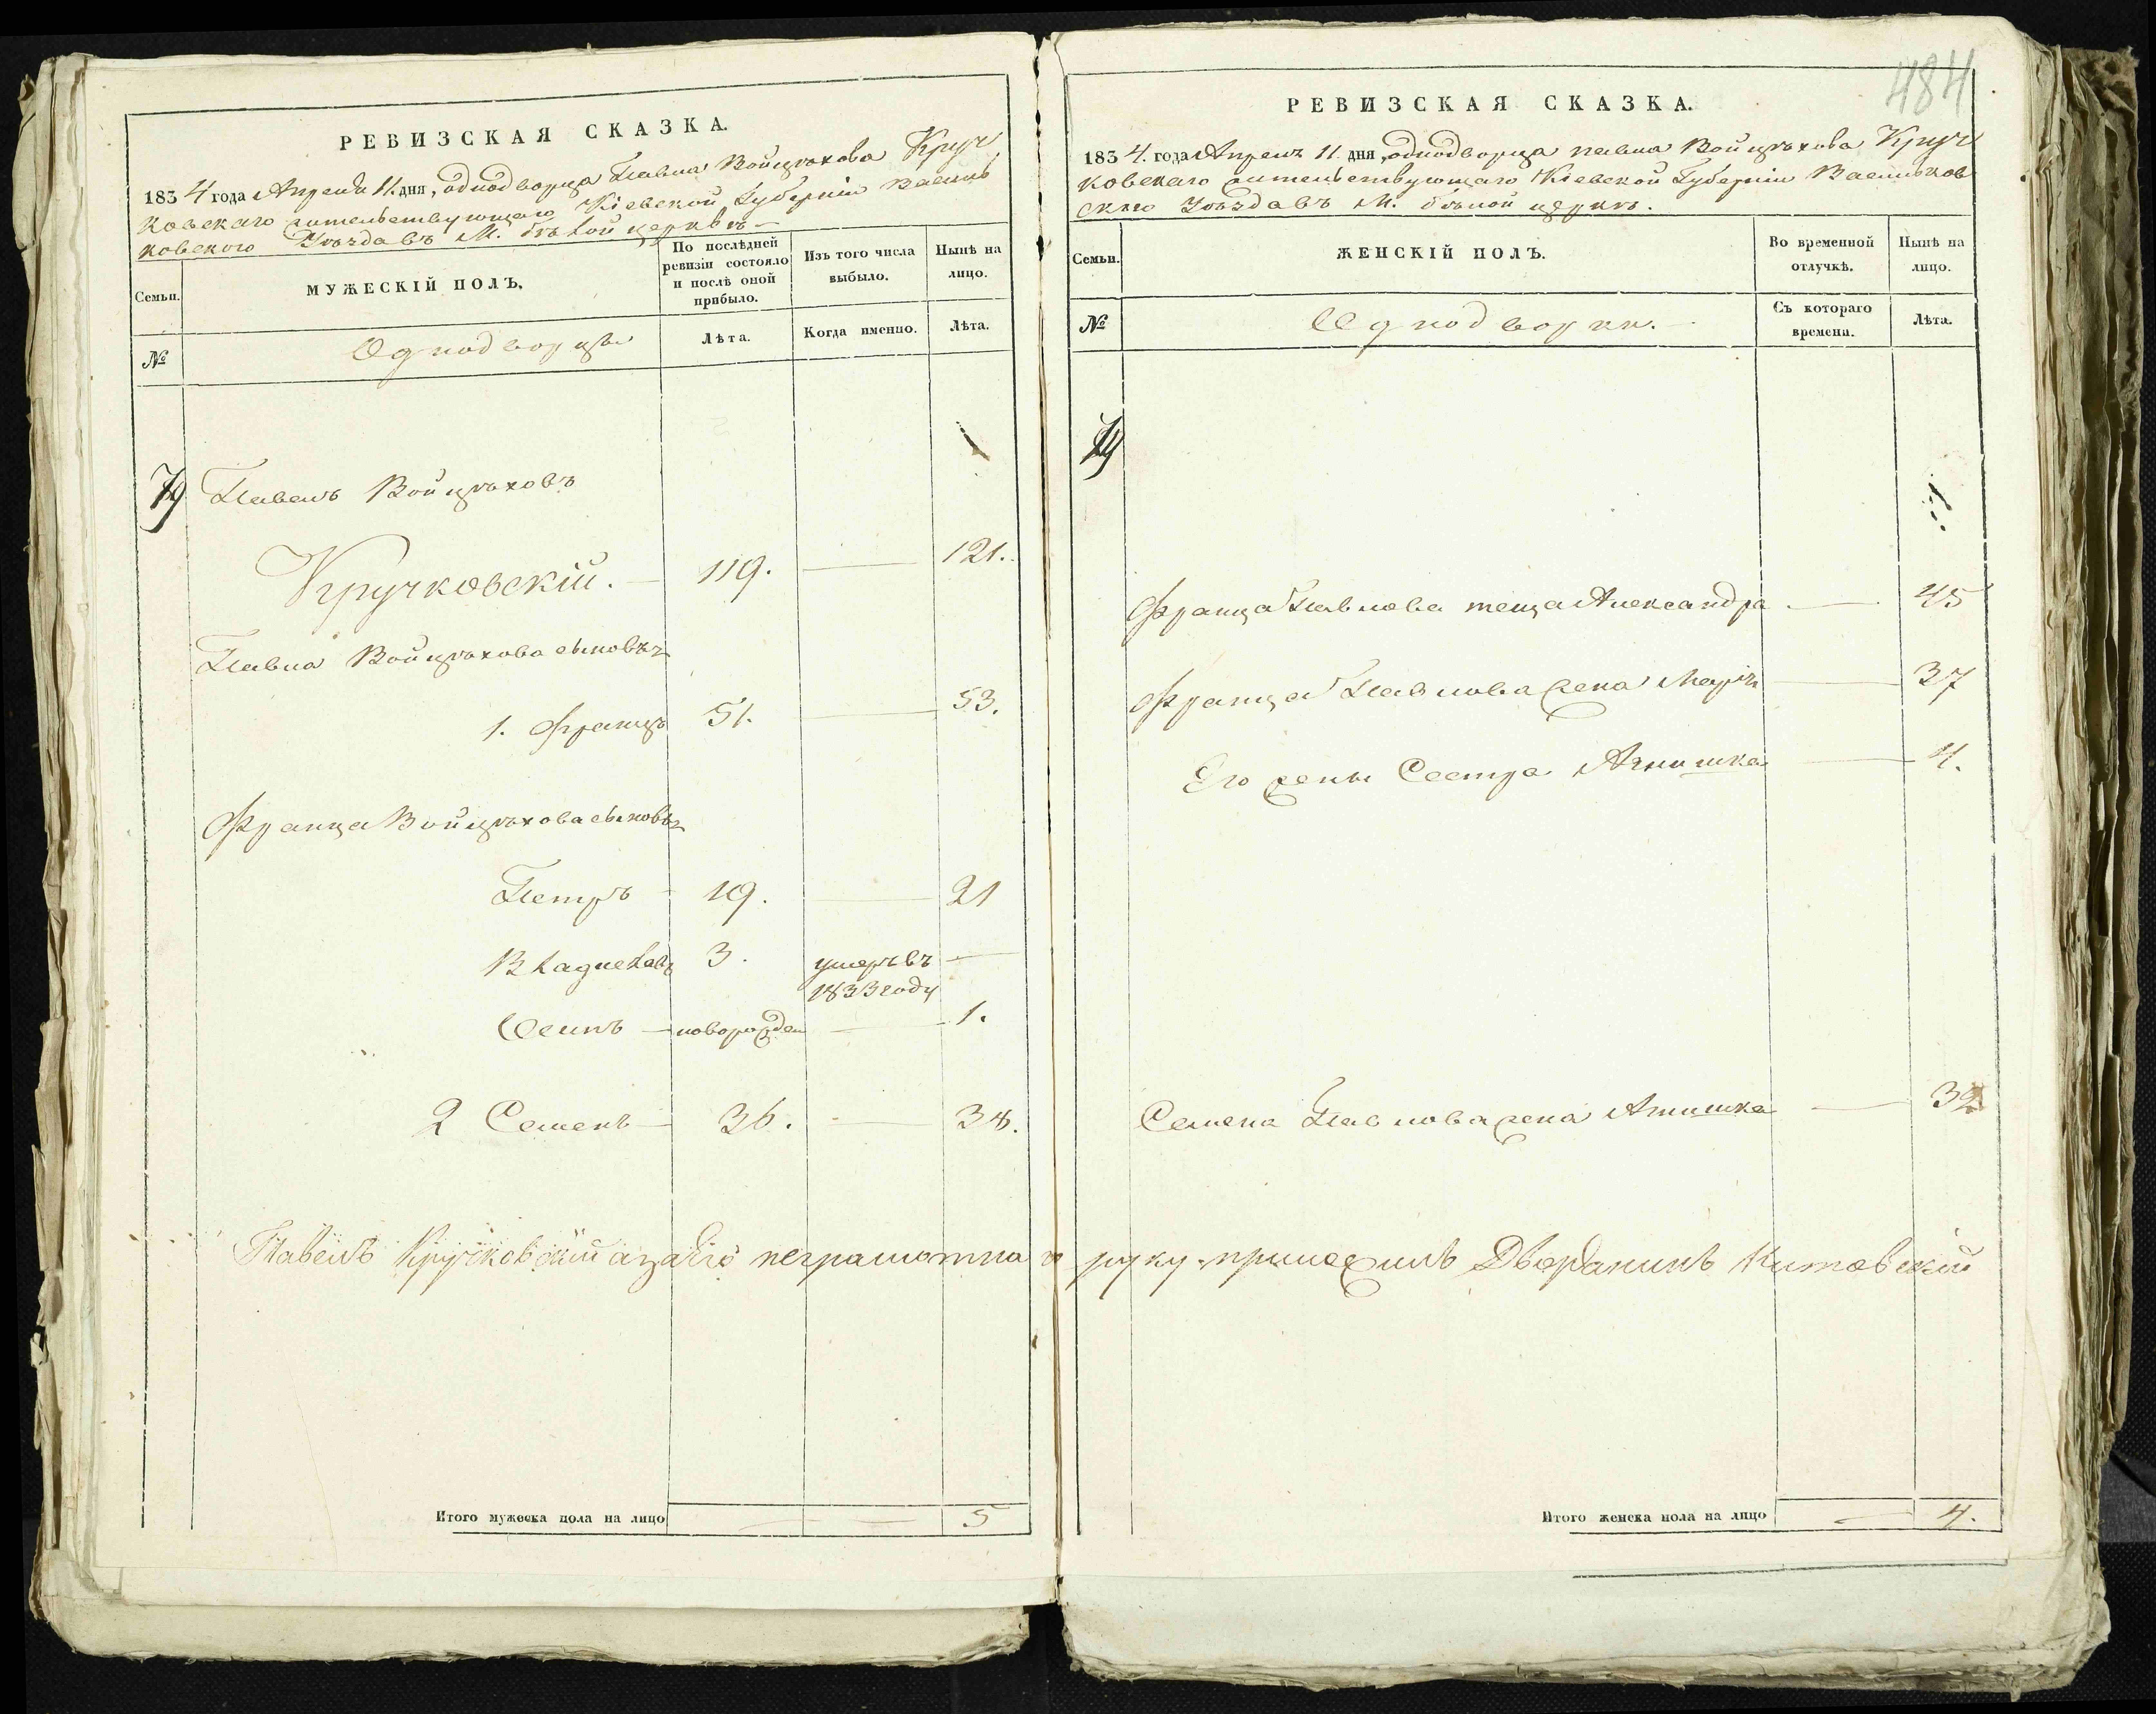 РЕВИЗСКАЯ СКАЗКА.
1834 года Апреля 11. дня, однодворца Павла Войцѣхова Круч
ковскаго жительствующаго Кіевской Губерніи Василь
ковского Уѣзда въ М. бѣлой церквѣ
Семьи.
МУЖЕСКІЙ ПОЛЪ.
По послѣдней ревизіи состояло и послѣ оной прибыло.
Изъ того числа выбыло.
Нынѣ на лицо.
№
Однодворцы
Лѣта.
Когда именно.
Лѣта.
79 Павелъ Войцѣховъ
Кручковскій. — 119. — 121.
Павла Войцѣхова сыновья
1. Францъ 51. — 53.
Франца Войцѣхова сыновья
Петръ — 19. — 21
Владиславъ 3. умеръ въ —
1833 году
Осипъ — новорожден — 1.
2 Семенъ — 36. — 38.
Итого мужеска пола на лицо — — 5
484
РЕВИЗСКАЯ СКАЗКА.
1834. года Апреля 11. дня, однодворца павла Войцѣхова Круч
ковскаго жительствующаго Кіевской Губерніи Васильков
скаго Уѣзда въ М. бѣлой церквѣ.
Семьи.
ЖЕНСКІЙ ПОЛЪ.
Во временной отлучкѣ.
Нынѣ на лицо.
№
Однодворки.
Съ котораго времени.
Лѣта.
Франца Павлова теща Александра — 45
Франца Павлова жена Марія — 37
Его жены Сестра Агнишка — 4.
Семена Павлова жена Агнишка — 32
Павелъ Кручковскій а за его неграмотна и руку приложилъ Дворанинъ
Итого женска пола на лицо — 4.